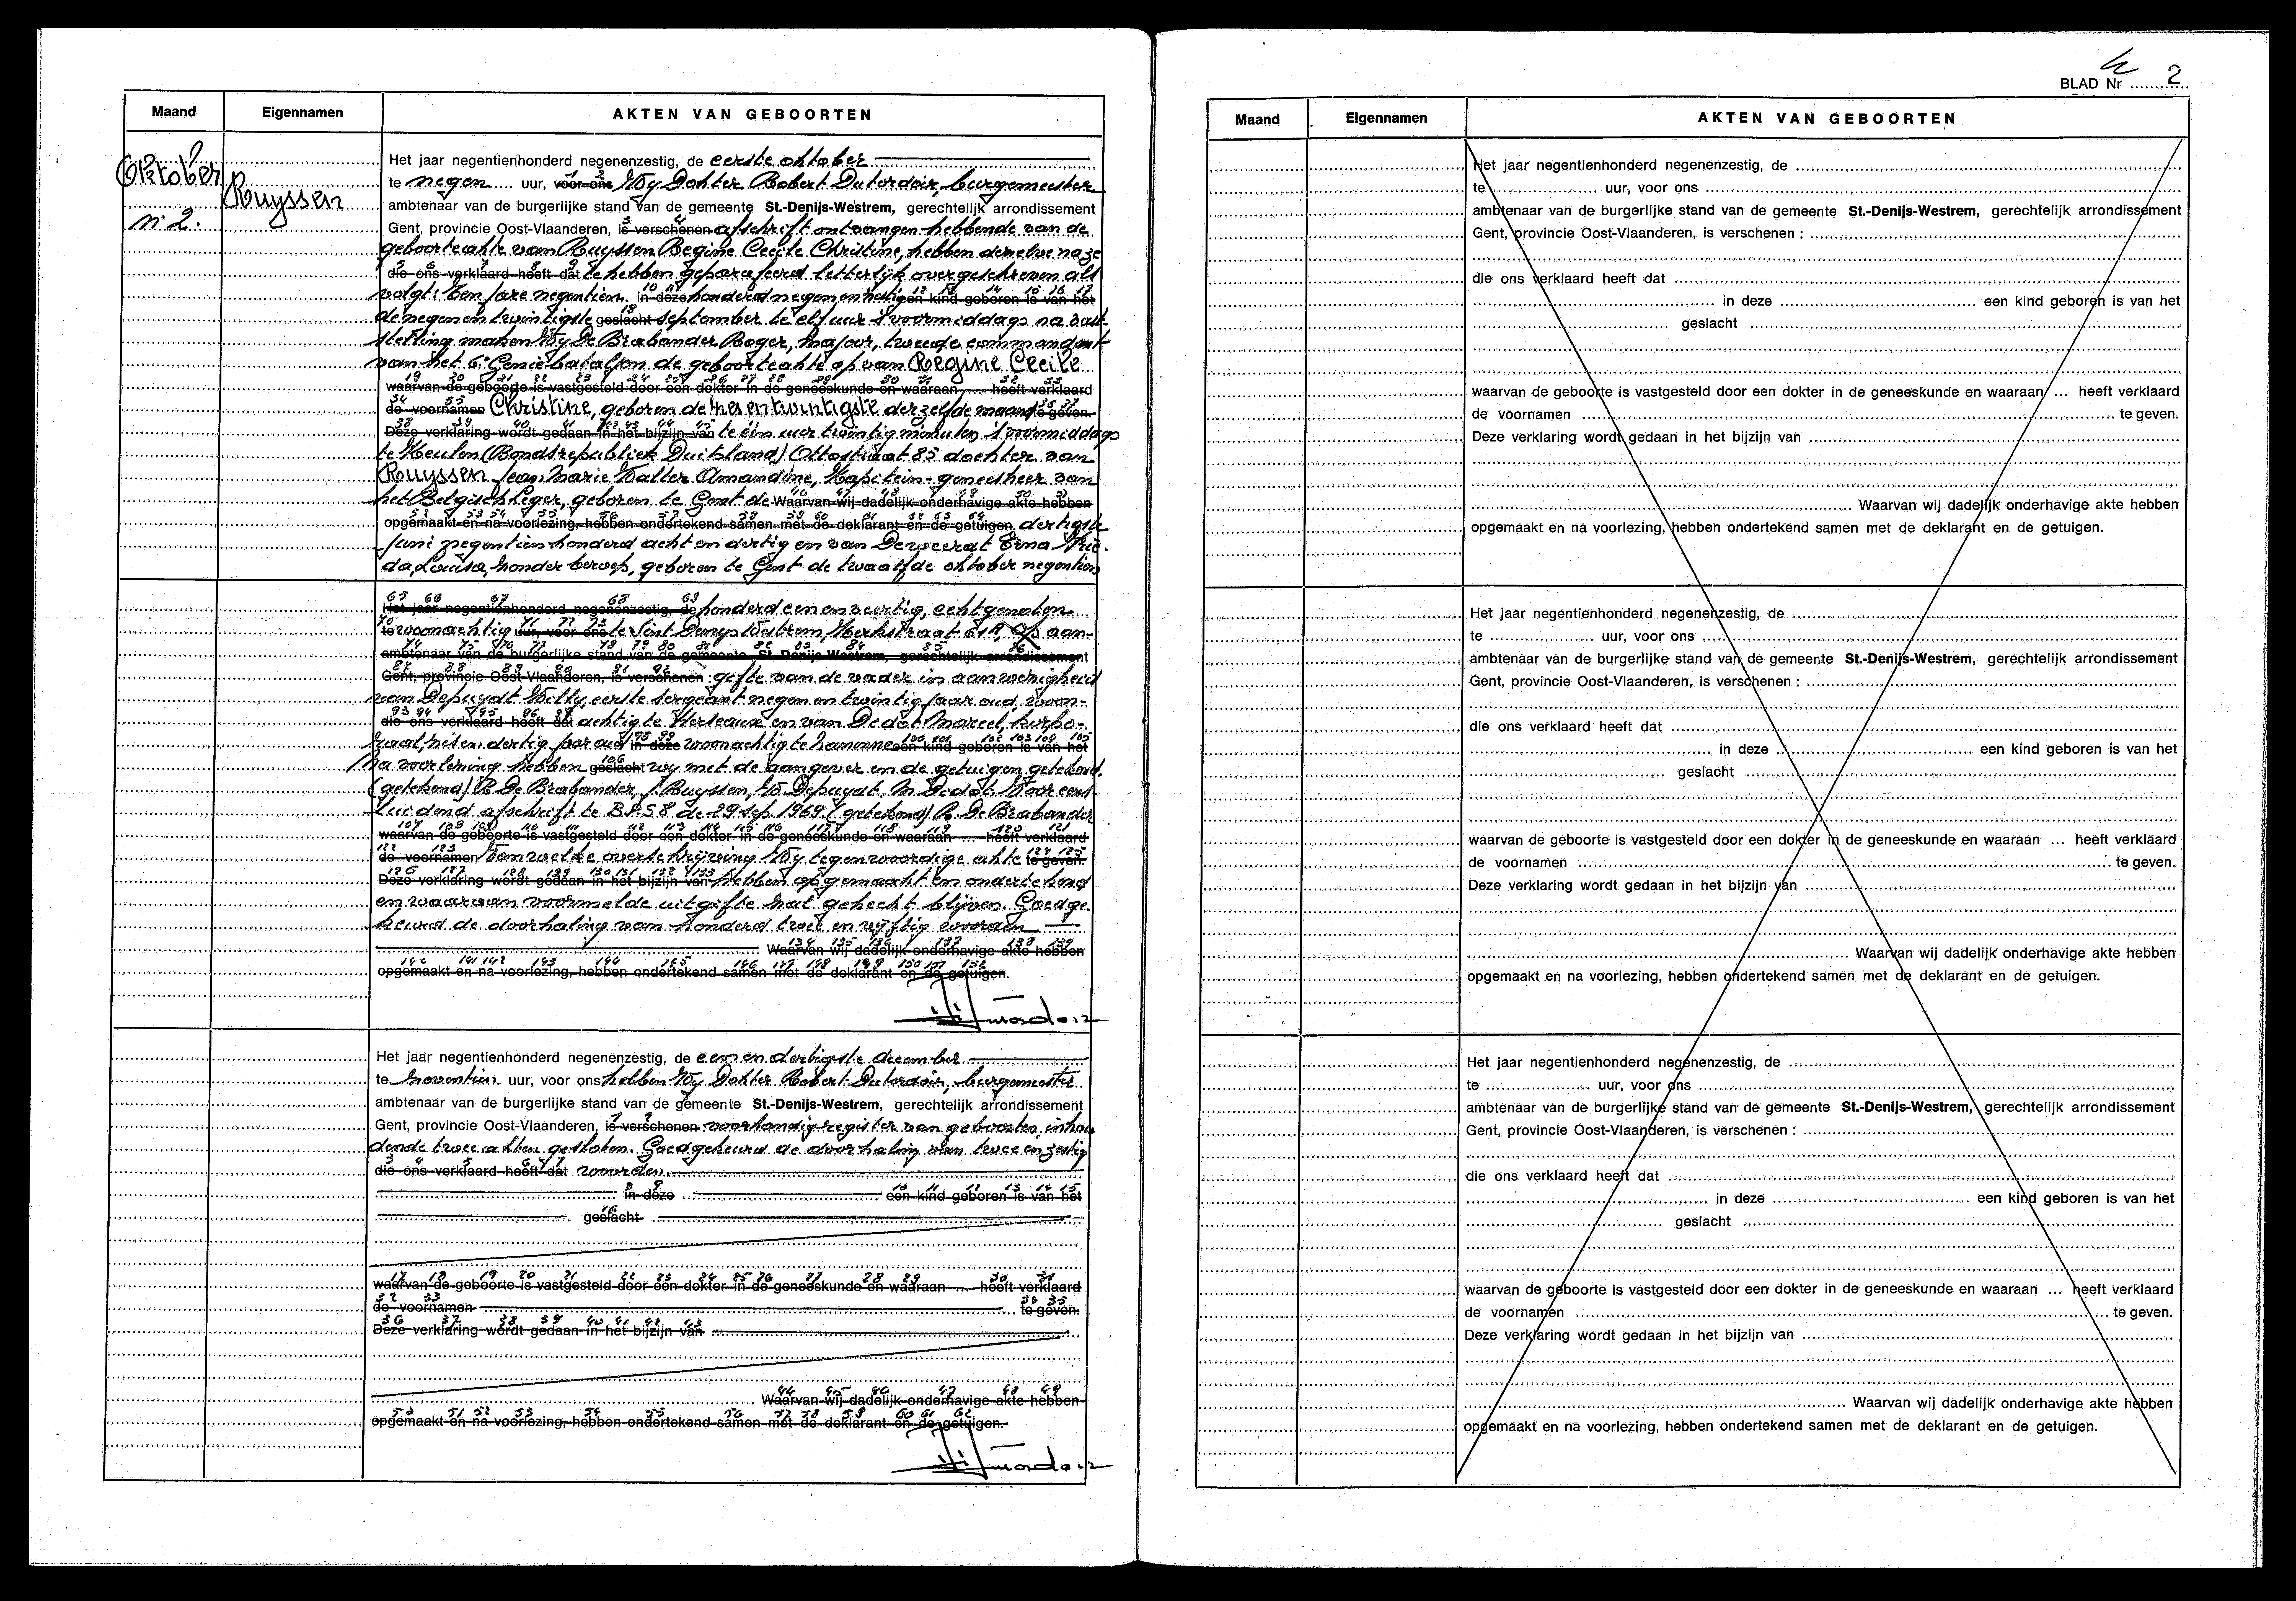 Maand Eigennamen AKTEN VAN GEBOORTEN
Oktober
n: 2.
Ruyssen
Het jaar negentienhonderd negenenzestig, de eerste oktober
te negen uur, voor ons Wij Dokter Robert Dutordoir, burgemeester
ambtenaar van de burgerlijke stand van de gemeente St.-Denijs-Westrem, gerechtelijk arrondissement
Gent, provincie Oost-Vlaanderen, is verschenen afschrift ontvangen hebbende van de
geboorteakte van Ruyssen Regine Cecile Christine, hebben denzelve na ze
die ons verklaard heeft dat te hebben geparafeerd letterlijk overgeschreven als
volgt: Ten jare negentien in deze honderd negenenzestig een kind geboren is van het
de negenentwintigste geslacht september te elf uur 's voormiddags na vast-
stelling maken Wij De Brabander Roger, majoor, tweede commandant
van het 6e Genie bataljon de geboorteakte op van Regine Cecile
waarvan de geboorte is vastgesteld door een dokter in de geneeskunde en waaraan ... heeft verklaard
de voornamen Christine, geboren de zesentwintigste derzelfde maand te geven.
Deze verklaring wordt gedaan in het bijzijn van te één uur twintig minuten 's voormiddags
te Keulen (Bondsrepubliek Duitsland) Ottostraat 85 dochter van
Ruyssen Jean Marie Walter Amandine, Kapitein-geneesheer van
het Belgisch Leger, geboren te Gent de Waarvan wij dadelijk onderhavige akte hebben
opgemaakt en na voorlezing, hebben ondertekend samen met de deklarant en de getuigen. dertigste
Juni negentienhonderd acht en dertig en van Deweerdt Erna Frie-
da, Louisa, zonder beroep, geboren te Gent de twaalfde oktober negentien
Het jaar negentienhonderd negenenzestig, de honderd eenenveertig, echtgenoten
te woonachtig uur, voor ons te Sint Denys Westrem, Kerkstraat 61 aan-
ambtenaar van de burgerlijke stand van de gemeente St.-Denijs-Westrem, gerechtelijk arrondissement
Gent, provincie Oost-Vlaanderen, is verschenen : gifte van de vader in aanwezigheid
van Depuydt Willy, eerste sergeant negen en twintig jaar oud, woon-
die ons verklaard heeft dat achtig te Herleaux en van Didot Marcel, korpo-
raal, zes en dertig jaar oud in deze woonachtig te hamme een kind geboren is van het
Na voorlezing hebben geslacht wij met de aangever en de getuigen getekend.
(getekend) R. De Brabander, J. Ruyssen, W. Depuydt, M Didot. Voor eens-
luidend afschrift te B.P.S 8 de 29 sep. 1969. (getekend) R. De Brabander
waarvan de geboorte is vastgesteld door een dokter in de geneeskunde en waaraan ... heeft verklaard
de voornamen Van welke overschrijving Wij tegenwoordige akte te geven.
Deze verklaring wordt gedaan in het bijzijn van hebben opgemaakt en ondertekend
en waaraan voormelde uitgifte zal gehecht blijven. Goedge-
keurd de doorhaling van honderd twee en vijftig woorden
Waarvan wij dadelijk onderhavige akte hebben
opgemaakt en na voorlezing, hebben ondertekend samen met de deklarant en de getuigen.
Het jaar negentienhonderd negenenzestig, de eenendertigste december
te zeventien uur, voor ons hebben Wij Dokter Robert Dutordoir, burgemeester
ambtenaar van de burgerlijke stand van de gemeente St.-Denijs-Westrem, gerechtelijk arrondissement
Gent, provincie Oost-Vlaanderen, is verschenen voorhandig register van geboorten, inhou
dende twee akten gesloten. Goedgekeurd de doorhaling van twee en zestig
die ons verklaard heeft dat woorden.
in deze een kind geboren is van het
geslacht
waarvan de geboorte is vastgesteld door een dokter in de geneeskunde en waaraan ... heeft verklaard
de voornamen te geven.
Deze verklaring wordt gedaan in het bijzijn van
Waarvan wij dadelijk onderhavige akte hebben
opgemaakt en na voorlezing, hebben ondertekend samen met de deklarant en de getuigen.
BLAD Nr 2
Maand Eigennamen AKTEN VAN GEBOORTEN
Het jaar negentienhonderd negenenzestig, de
te uur, voor ons
ambtenaar van de burgerlijke stand van de gemeente St.-Denijs-Westrem, gerechtelijk arrondissement
Gent, provincie Oost-Vlaanderen, is verschenen :
die ons verklaard heeft dat
in deze een kind geboren is van het
geslacht
waarvan de geboorte is vastgesteld door een dokter in de geneeskunde en waaraan ... heeft verklaard
de voornamen te geven.
Deze verklaring wordt gedaan in het bijzijn van
Waarvan wij dadelijk onderhavige akte hebben
opgemaakt en na voorlezing, hebben ondertekend samen met de deklarant en de getuigen.
Het jaar negentienhonderd negenenzestig, de
te uur, voor ons
ambtenaar van de burgerlijke stand van de gemeente St.-Denijs-Westrem, gerechtelijk arrondissement
Gent, provincie Oost-Vlaanderen, is verschenen :
die ons verklaard heeft dat
in deze een kind geboren is van het
geslacht
waarvan de geboorte is vastgesteld door een dokter in de geneeskunde en waaraan ... heeft verklaard
de voornamen te geven.
Deze verklaring wordt gedaan in het bijzijn van
Waarvan wij dadelijk onderhavige akte hebben
opgemaakt en na voorlezing, hebben ondertekend samen met de deklarant en de getuigen.
Het jaar negentienhonderd negenenzestig, de
te uur, voor ons
ambtenaar van de burgerlijke stand van de gemeente St.-Denijs-Westrem, gerechtelijk arrondissement
Gent, provincie Oost-Vlaanderen, is verschenen :
die ons verklaard heeft dat
in deze een kind geboren is van het
geslacht
waarvan de geboorte is vastgesteld door een dokter in de geneeskunde en waaraan ... heeft verklaard
de voornamen te geven.
Deze verklaring wordt gedaan in het bijzijn van
Waarvan wij dadelijk onderhavige akte hebben
opgemaakt en na voorlezing, hebben ondertekend samen met de deklarant en de getuigen.